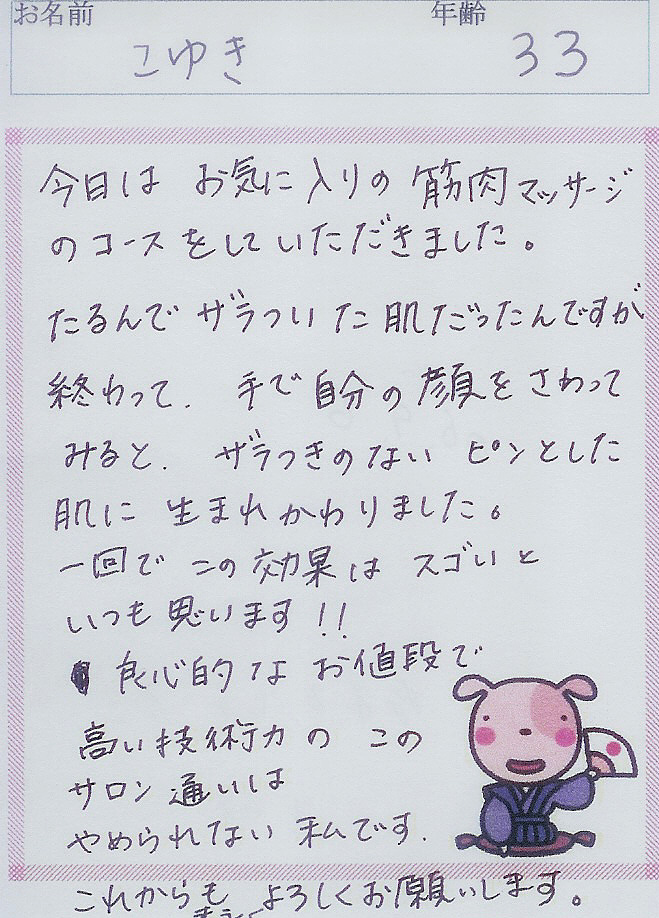 お名前 年齢
こゆき 33
今日は お気に入りの 筋肉マッサージ
のコースをしていただきました。
たるんで ザラついた 肌だったんですが
終わって、手で自分の顔をさわって
みると、ザラつきのない ピンとした
肌に 生まれかわりました。
一回で この効果は スゴいと
いつも思います!!
良心的な お値段で
高い技術力の この
サロン通いは
やめられない 私です。
これからも よろしくお願いします。